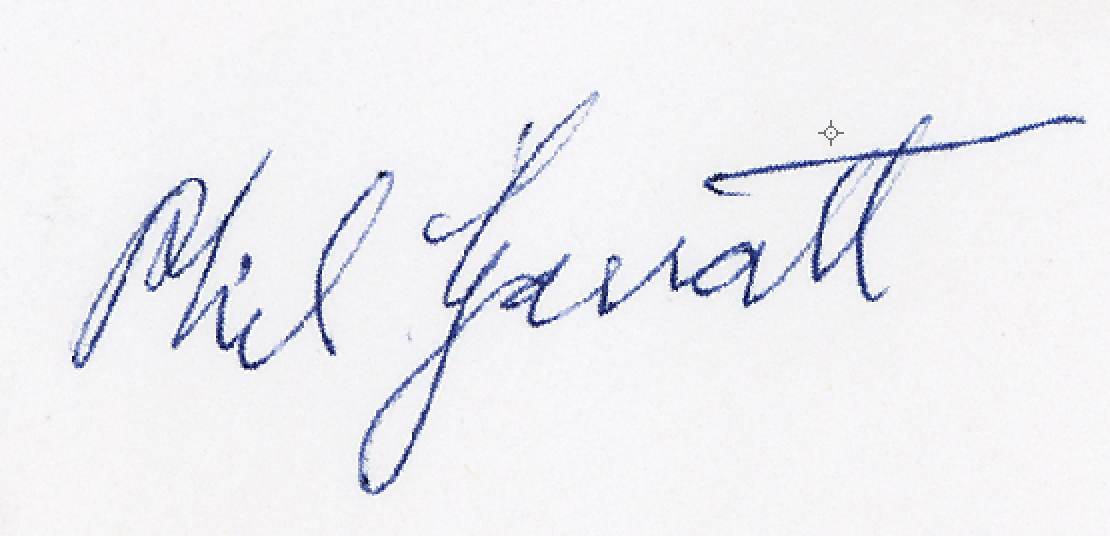 Phil Garratt